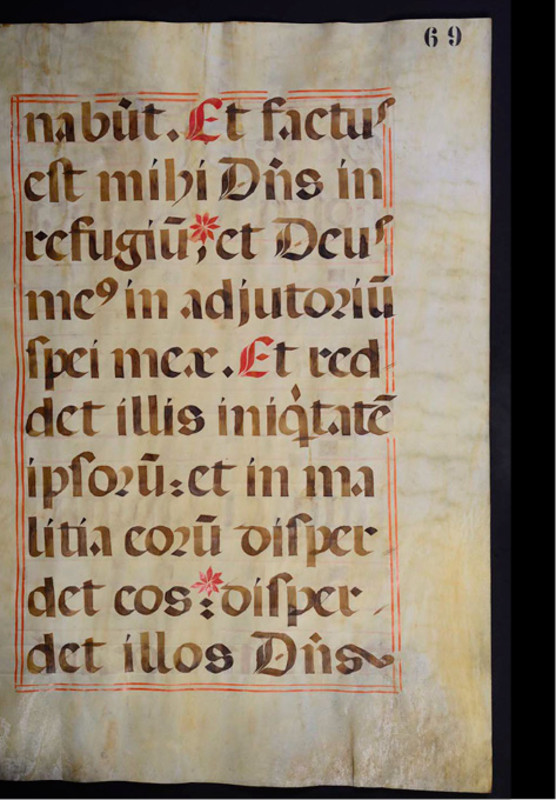 69
nabūt. Et factuſ
eſt mihi Dn̄s in
refugiū;* et Deuſ
meꝰ in adjutoriū
ſpei meæ. Et red
det illis iniq̇tatē
ipſorū: et in ma
litia eorū diſper
det eos:* diſper
det illos Dn̄s